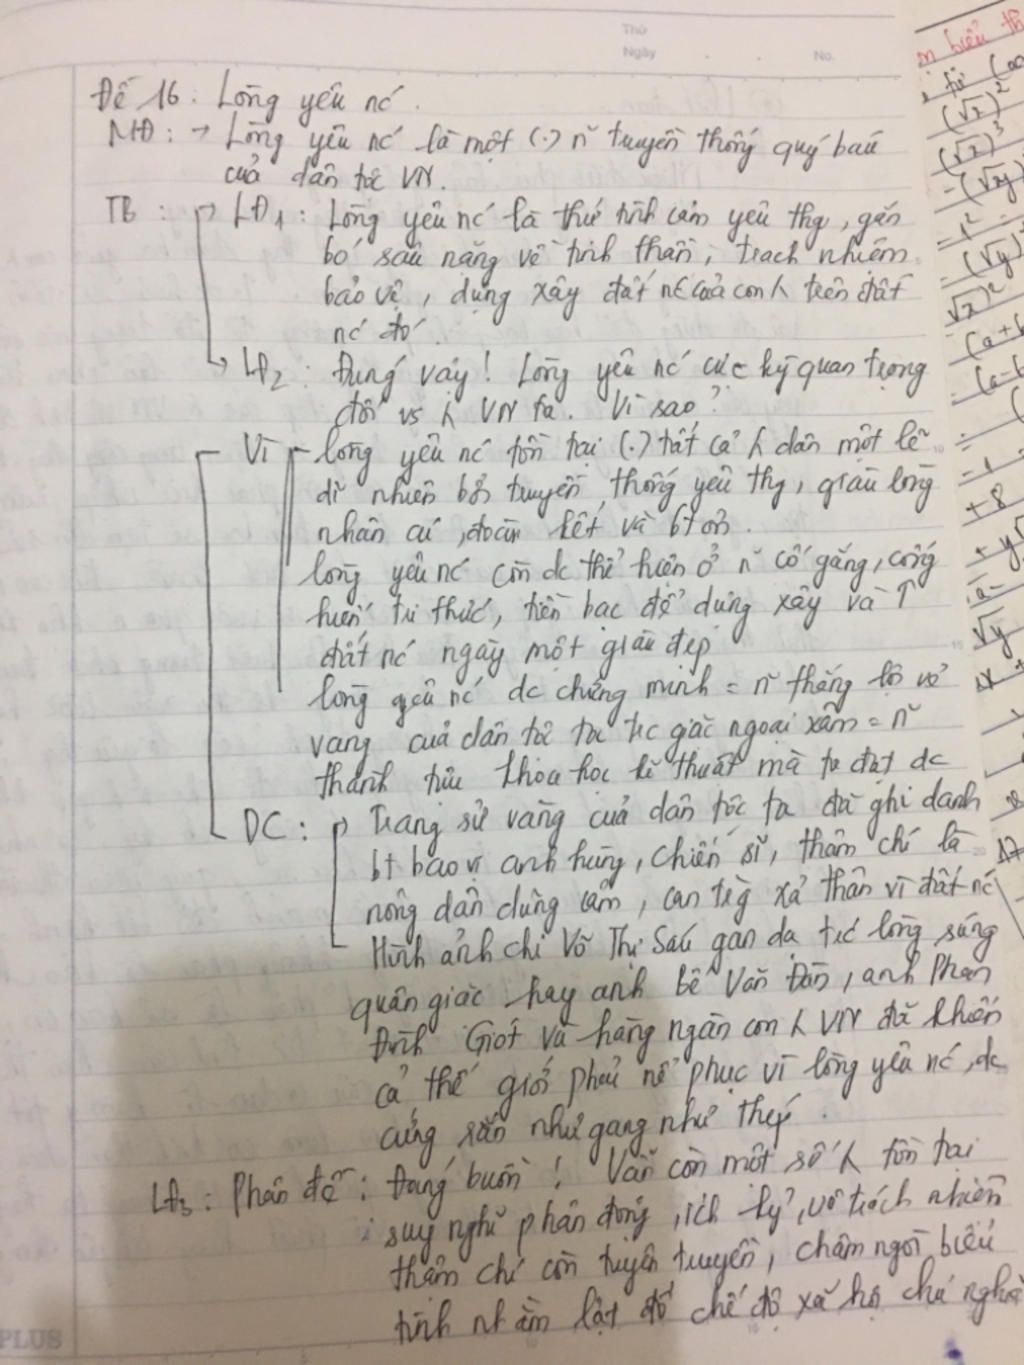 Thứ
Ngày
No.
Đề 16: Lòng yêu nć.
MĐ: → Lòng yêu nć là một (.) n~ truyền thống quý báu
của dân tộc VN.
TB: → LĐ1: Lòng yêu nć là thứ tình cảm yêu thg, gắn
bó sâu nặng về tinh thần, trách nhiệm
bảo vệ, dựng xây đất nć của con λ trên đất
nć đó
→ LĐ2: Đúng vậy! Lòng yêu nć cực kỳ quan trọng
đối vs λ VN ta. Vì sao?
Vì lòng yêu nć tồn tại (.) tất cả λ dân một lẽ
dĩ nhiên bởi truyền thống yêu thg, giàu lòng
nhân ái, đoàn kết và bt ơn.
lòng yêu nć còn dc thể hiện ở n~ cố gắng, cống
hiến tri thức, tiền bạc để dựng xây và ↑
đất nć ngày một giàu đẹp
lòng yêu nć dc chứng minh = n~ thắng lợi vẻ
vang của dân tộc ta trc giặc ngoại xâm = n~
thành tựu khoa học kĩ thuật mà ta đạt dc
DC: → Trang sử vàng của dân tộc ta đã ghi danh
bt bao vị anh hùng, chiến sĩ, thậm chí là
nông dân dũng cảm, can trg xả thân vì đất nć
Hình ảnh chị Võ Thị Sáu gan dạ trć lòng súng
quân giặc hay anh Bế Văn Đàn, anh Phan
Đình Giót và hàng ngàn con λ VN đã khiến
cả thế giới phải nể phục vì lòng yêu nć, dc
cứng rắn như gang như thép.
LĐ3: Phản đề: Đáng buồn! Vẫn còn một số λ tồn tại
suy nghĩ phản động, ích kỷ, vô trách nhiệm
thậm chí còn tuyên truyền, châm ngòi biểu
tình nhằm lật đổ chế độ xã hội chủ nghĩa
PLUS